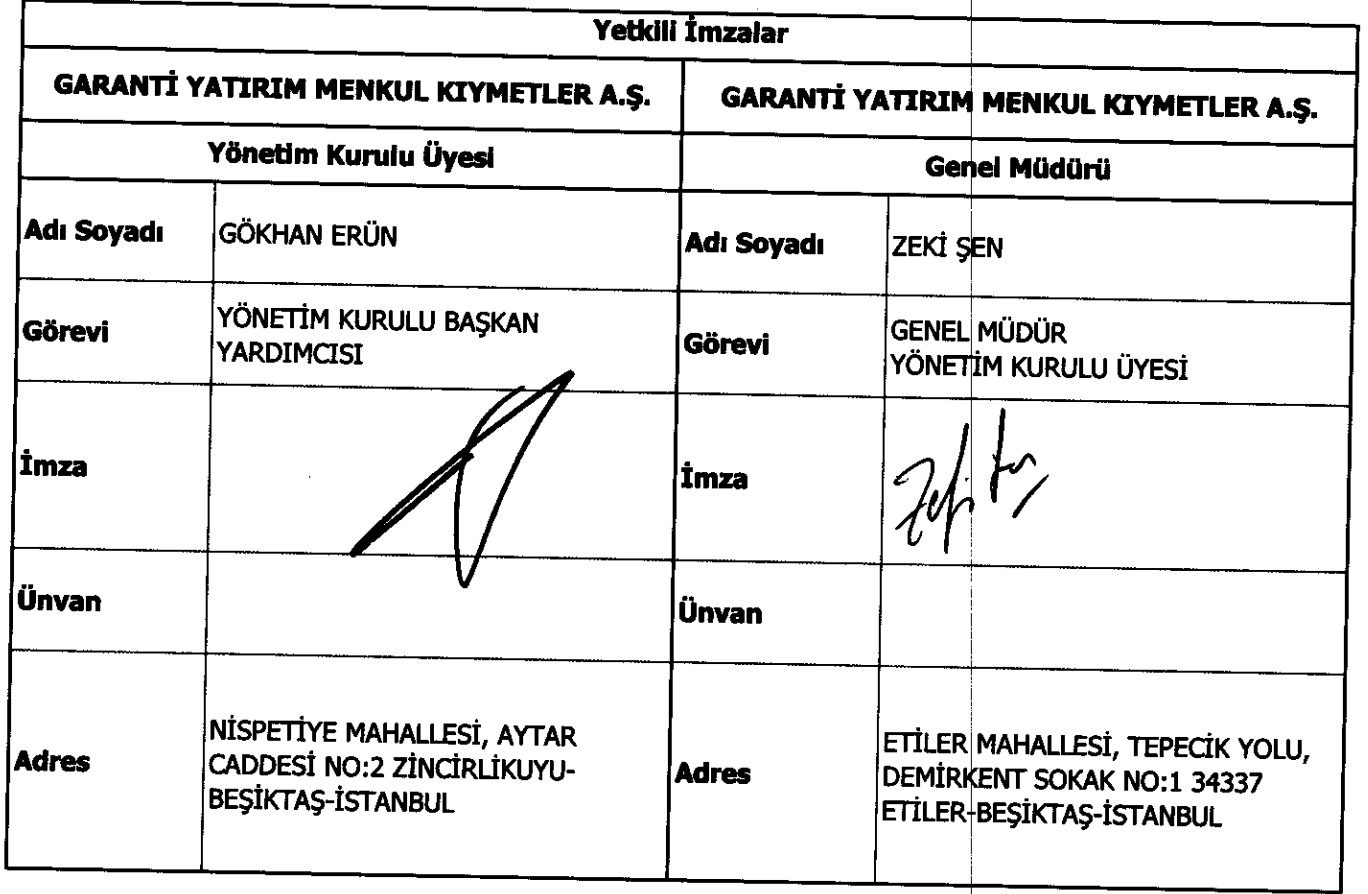 Yetkili İmzalar
GARANTİ YATIRIM MENKUL KIYMETLER A.Ş.
GARANTİ YATIRIM MENKUL KIYMETLER A.Ş.
Yönetim Kurulu Üyesi
Genel Müdürü
Adı Soyadı
GÖKHAN ERÜN
Adı Soyadı
ZEKİ ŞEN
Görevi
YÖNETİM KURULU BAŞKAN
YARDIMCISI
Görevi
GENEL MÜDÜR
YÖNETİM KURULU ÜYESİ
İmza
İmza
Ünvan
Ünvan
Adres
NİSPETİYE MAHALLESİ, AYTAR
CADDESİ NO:2 ZİNCİRLİKUYU-
BEŞİKTAŞ-İSTANBUL
Adres
ETİLER MAHALLESİ, TEPECİK YOLU,
DEMİRKENT SOKAK NO:1 34337
ETİLER-BEŞİKTAŞ-İSTANBUL